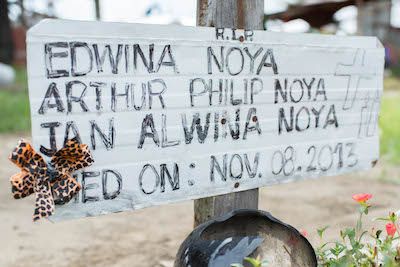 R.I.P
EDWINA NOYA
ARTHUR PHILIP NOYA
IAN ALWINA NOYA
DIED ON: NOV. 08. 2013